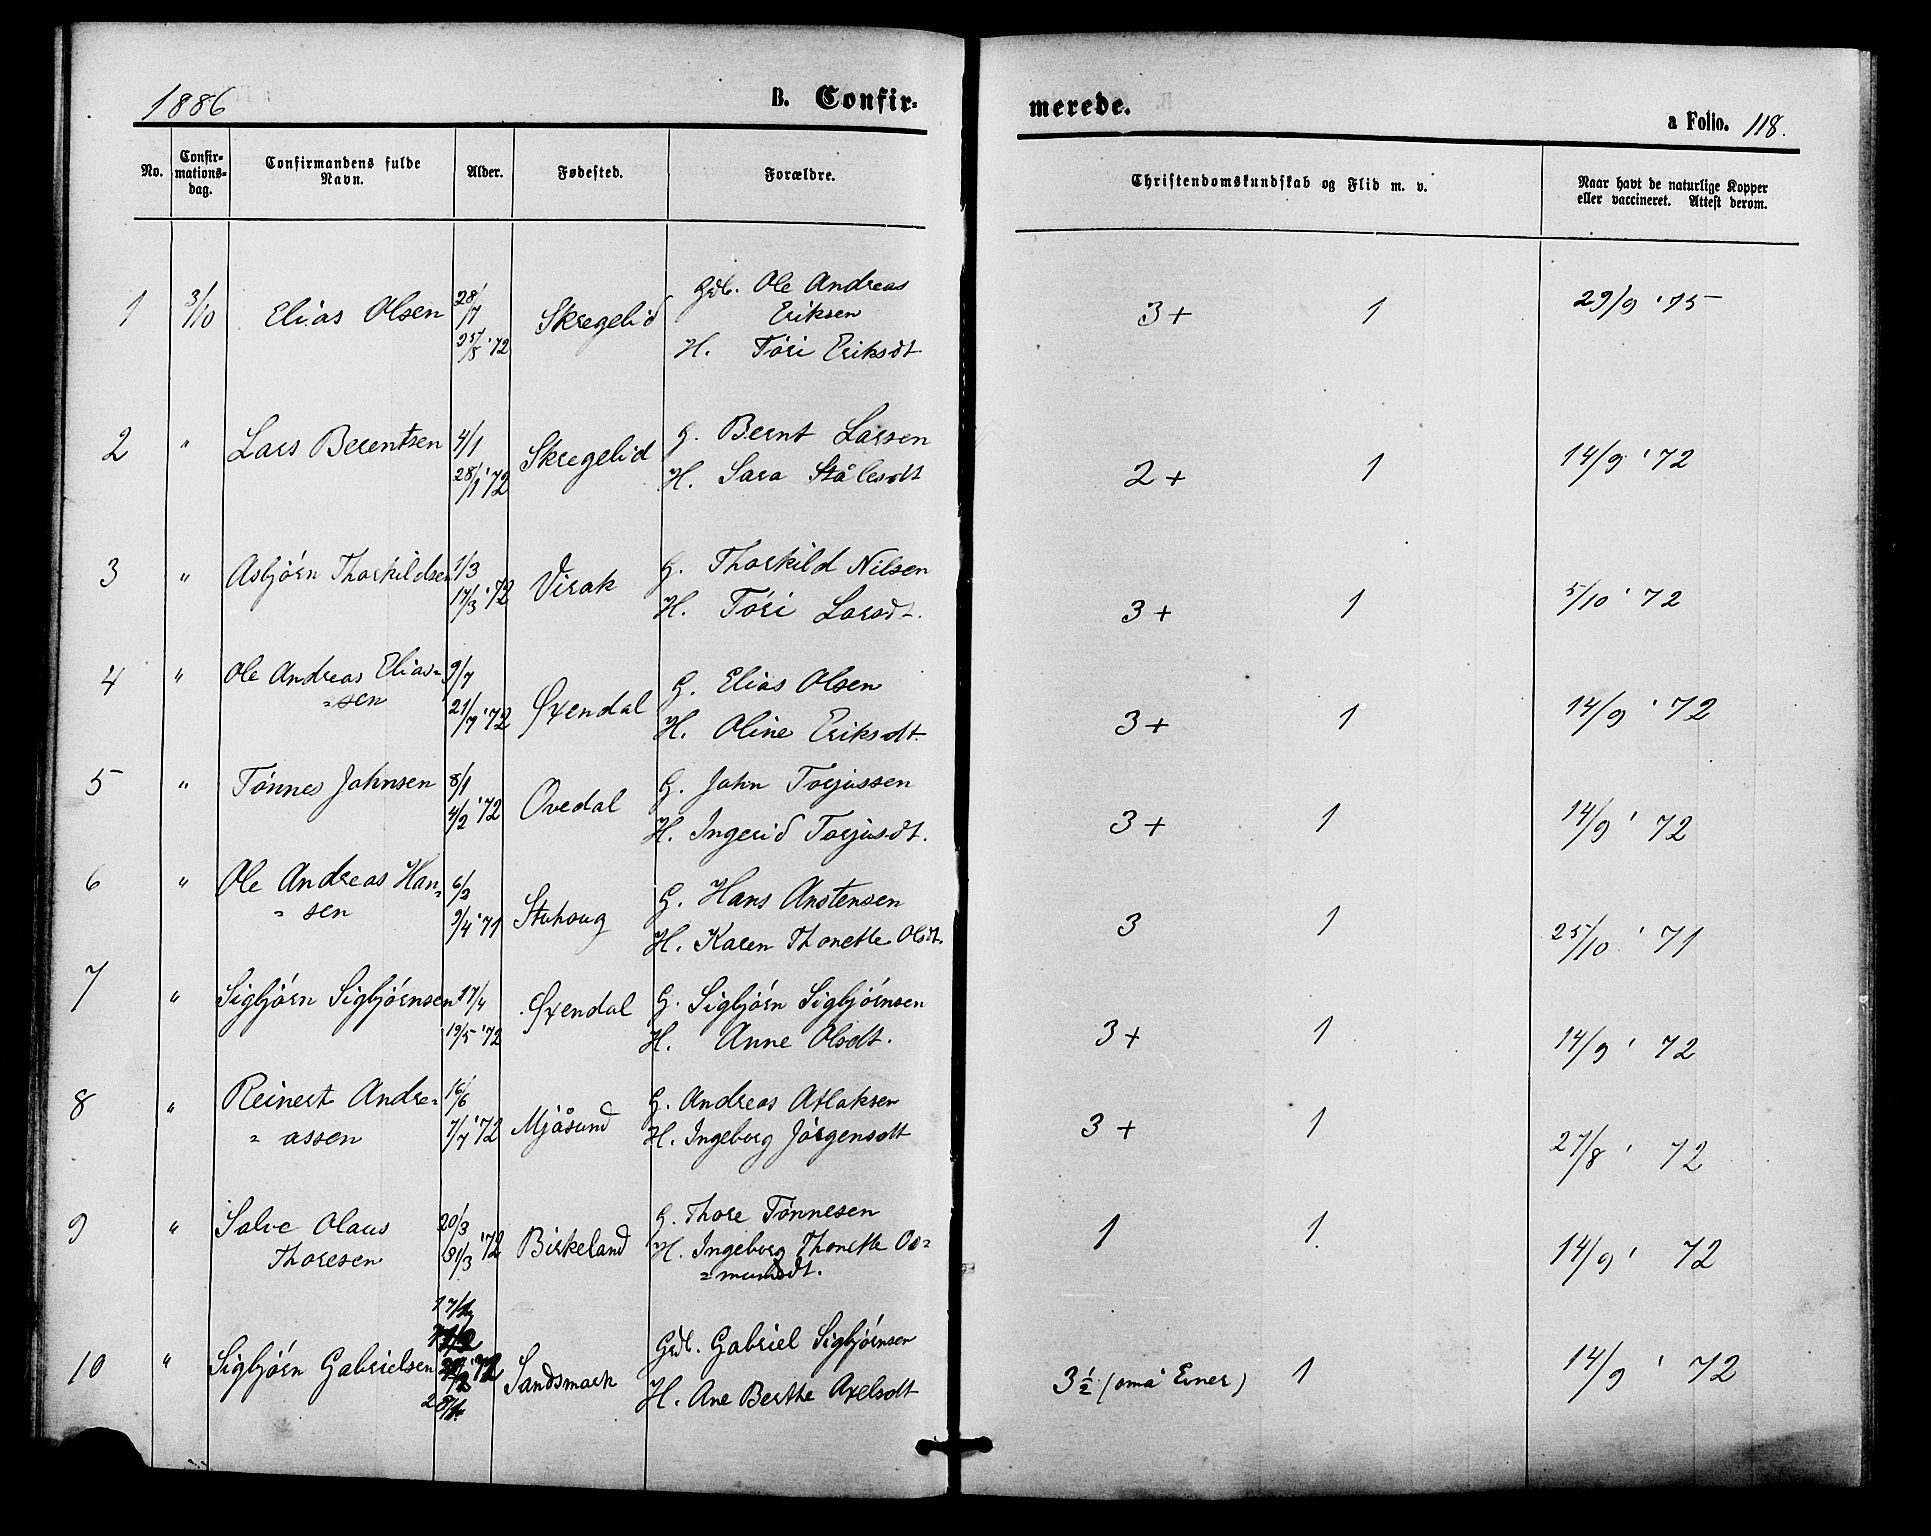 1886
B. Confir-
merede.
a Folio. 118.
No.
Confir-
mations-
dag.
Confirmandens fulde
Navn.
Alder.
Fødested.
Forældre.
Christendomskundskab og Flid m. v.
Naar havt de naturlige Kopper
eller vaccineret. Attest derom.
1 3/10 Elias Olsen 28/7 25/8 '72 Skregelid
Gdb. Ole Andreas
Eriksen
H. Töri Eriksdt.
3+ 1 29/9 '75
2 " Lars Berentsen 4/1 28/1 '72 Skregelid
G. Bernt Larsen
H. Sara Stålesdt
2+ 1 14/9 '72
3 " Asbjörn Thorkildsen 1/3 17/3 '72 Virak
G. Thorkild Nilsen
H. Töri Larsdt.
3+ 1 5/10 '72
4 " Ole Andreas Elias-
=sen 9/7 21/7 '72 Øxendal
G. Elias Olsen
H. Oline Eriksdt.
3+ 1 14/9 '72
5 " Tönnes Johnsen 8/1 4/2 '72 Ovedal
G. John Torjussen
H. Ingerid Torjusdt.
3+ 1 14/9 '72
6 " Ole Andreas Han-
=sen 6/2 9/4 '71 Stuhoug
G. Hans Anstensen
H. Karen Thonette Olsdt.
3 1 25/10 '71
7 " Sigbjörn Sigbjörnsen 17/4 19/5 '72 Øxendal
G. Sigbjörn Sigbjörnsen
H. Anne Olsdt.
3+ 1 14/9 '72
8 " Reinert Andre-
=assen 16/6 7/7 '72 Mjåsund
G. Andreas Atlaksen
H. Ingeborg Jörgensdt
3+ 1 27/8 '72
9 " Salve Olaus
Thoresen 20/3 31/3 '72 Birkeland
G. Thore Tönnesen
H. Ingeborg Thonette Os=
=mundsdt.
1 1 14/9 '72
10 " Sigbjörn Gabrielsen Sandsmark
Gdb. Gabriel Sigbjörnsen
H. Ane Berthe Axelsdt
3 1/2 (små Evner) 1 14/9 '72